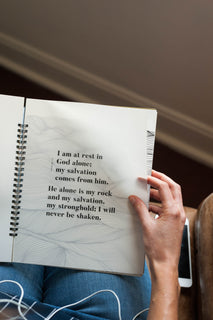 I am at rest in
God alone;
my salvation
comes from him.
He alone is my rock
and my salvation,
my stronghold; I will
never be shaken.